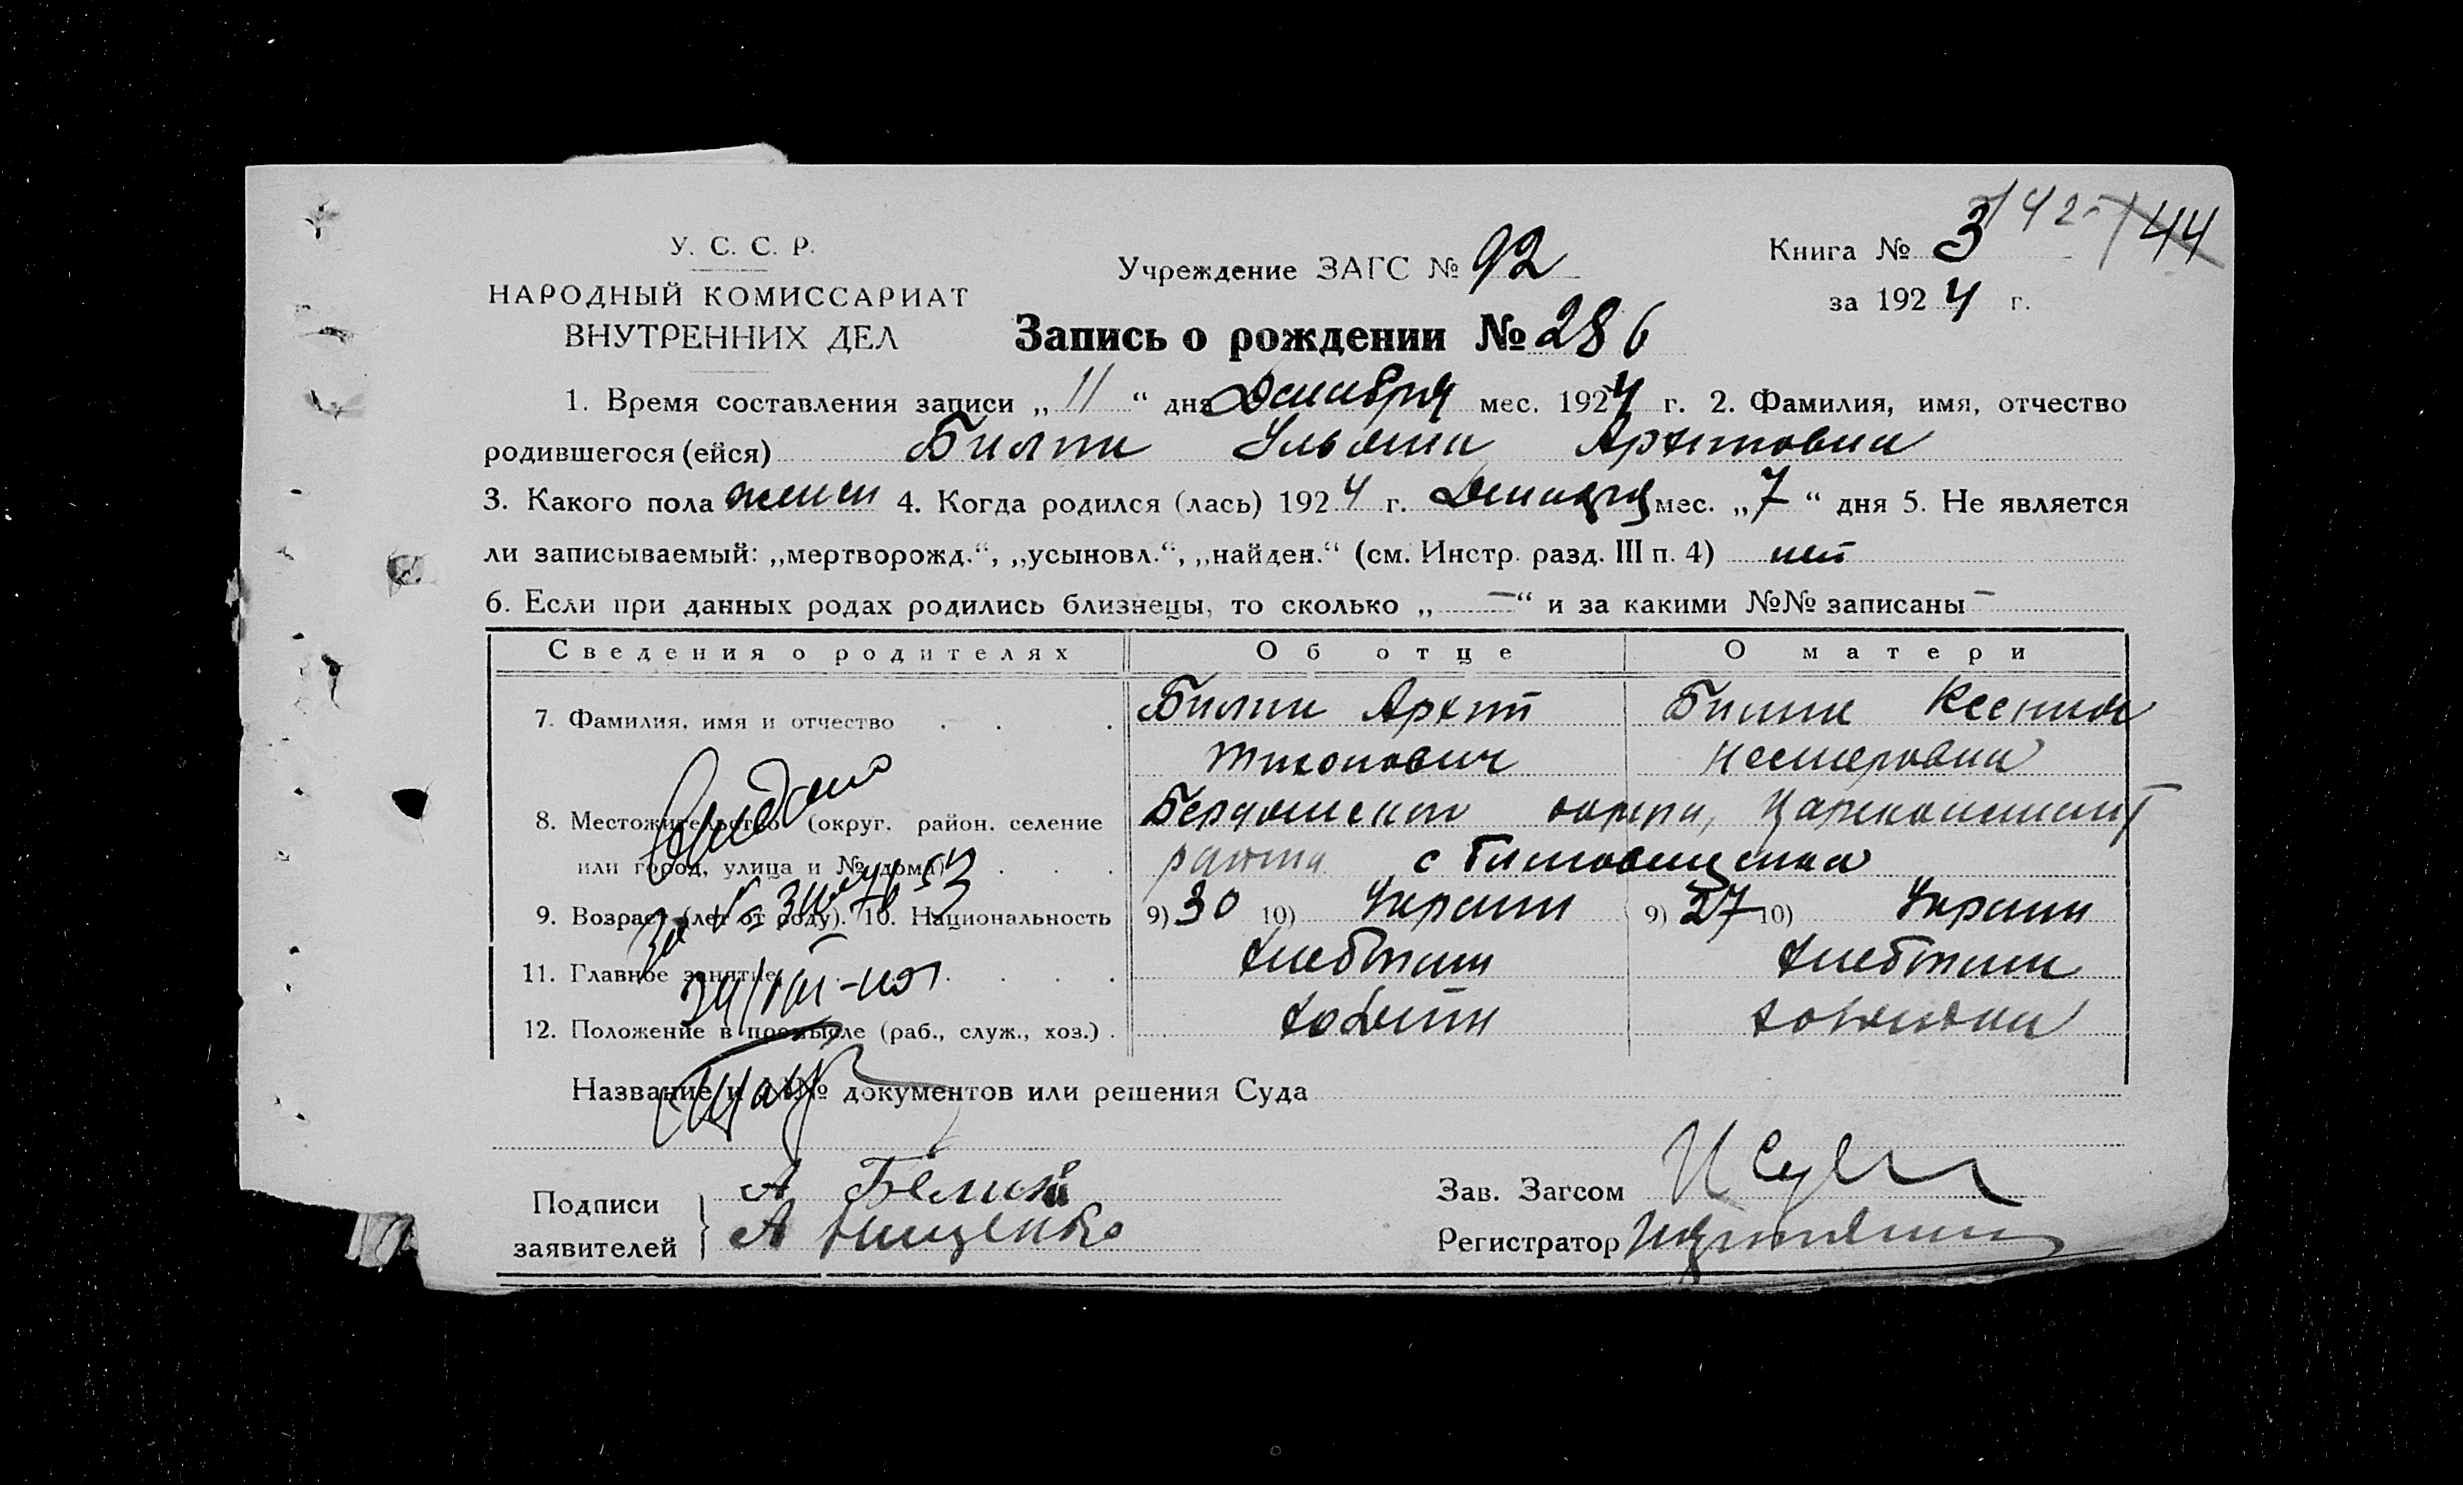 142 144
У. С. С. Р.
НАРОДНЫЙ КОМИССАРИАТ
ВНУТРЕННИХ ДЕЛ
Учреждение ЗАГС № 92
Книга № 3
за 1924 г.
Запись о рождении № 286
1. Время составления записи „11“ дня Декабря мес. 1924 г. 2. Фамилия, имя, отчество
родившегося (ейся) Ульяна Архиповна
3. Какого пола женск 4. Когда родился (лась) 1924 г. Декабря мес. „7“ дня 5. Не является
ли записываемый: „мертворожд.“, „усыновл.“, „найден.“ (см. Инстр. разд. III п. 4) нет
6. Если при данных родах родились близнецы, то сколько „—“ и за какими №№ записаны —
Сведения о родителях Об отце О матери
7. Фамилия, имя и отчество . . . Архип Ксения
Тихонович Нестеровна
8. Местожительство (округ, район, селение
или город, улица и № дома) . . . района с
9. Возраст (лет от роду). 10. Национальность 9) 30 10) Украин 9) 27 10) Украин
11. Главное занятие . . . . . хлебопаш хлебопаш
12. Положение в промысле (раб., служ., хоз.) . хозяин
Название и №№ документов или решения Суда
Подписи заявителей } А Белий
А Нищенко
Зав. Загсом
Регистратор